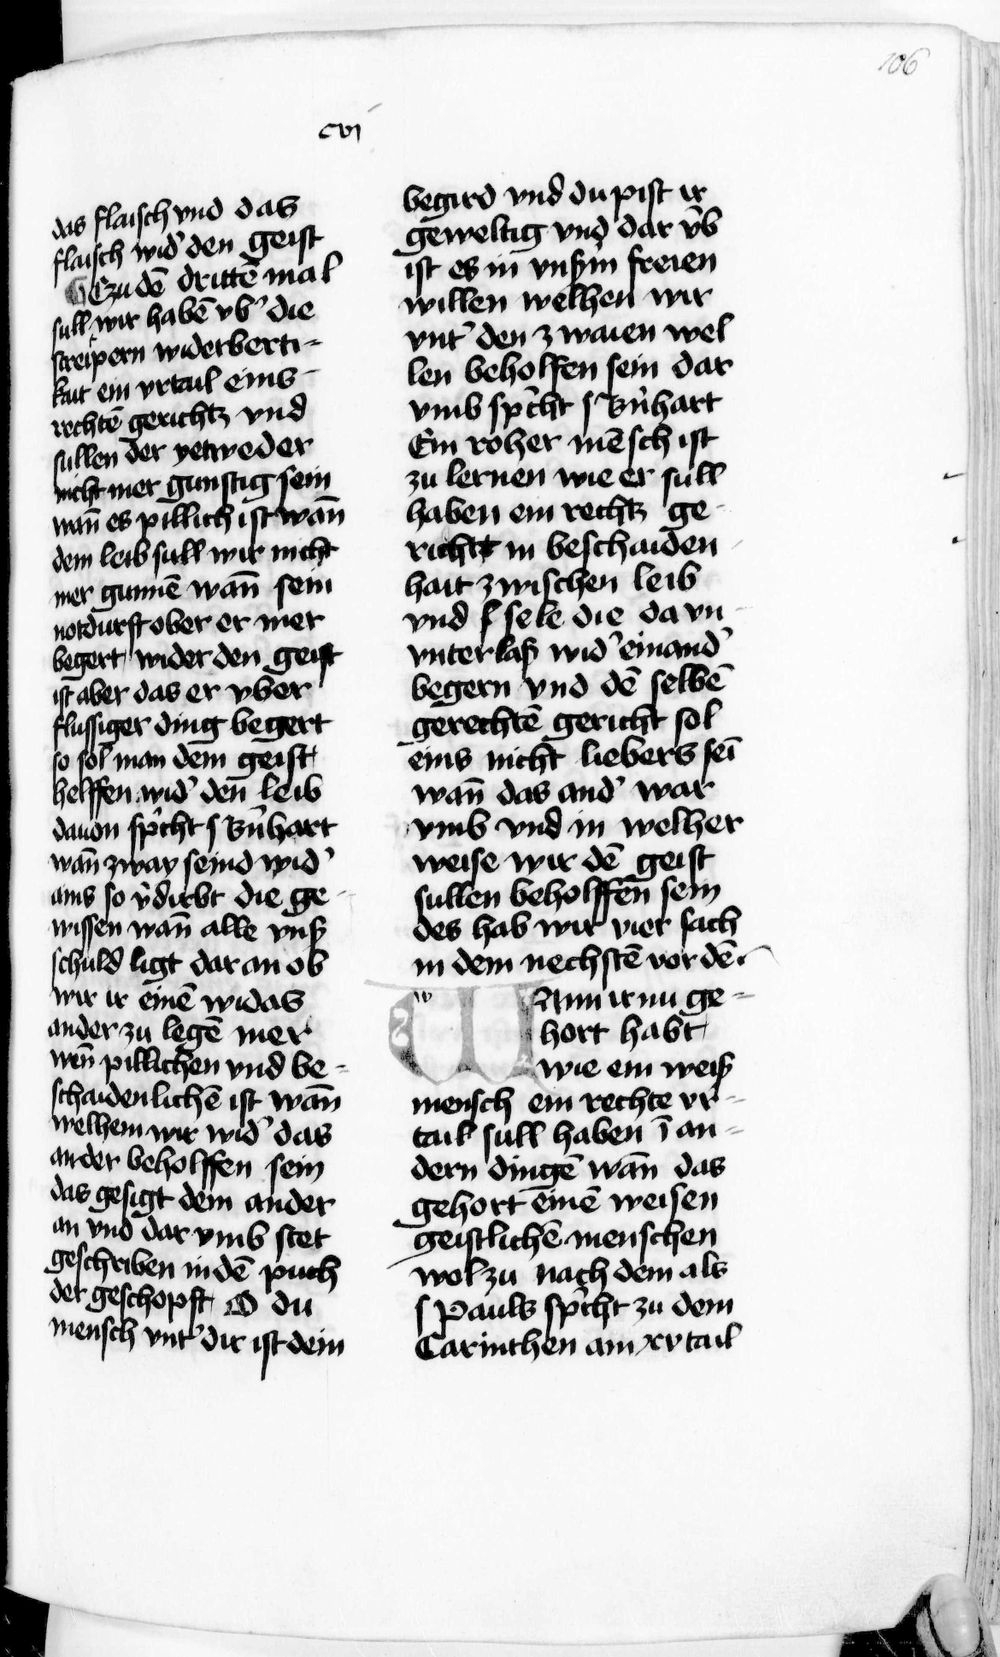 106
cvi
das flaisch vnd das
flaisch wid' den geist
Czu dē drittē mal
sull wir habē vb' die
streipern widerberti-
kait ein vrtail eins
rechtē gerichtz vnd
sullen der yetweder
nicht mer gunstig sein
wañ es pillich ist wañ
dem leib sull wir nicht
mer gunnē wañ sein
notdurft ober er mer
begert wider den geist
ist aber das er vber
flussiger ding begert
so sol man dem geist
helffen wid' den leib
dauon sp̄cht s Bn̄hart
wañ zway seind wid'
ains so v̄dirbt die ge-
wissen wañ alle vnß
schuld ligt dar an ob
wir ir einē widas
ander zu legē mer
wen̄ pillichen vnd be-
schaidenlichē ist wañ
welhem wir wid' das
ander beholffen sein
das gesigt dem ander
an vnd dar vmb stet
geschriben in dē puch
der geschopft O du
mensch vnt' dir ist dein
begird vnd du pist ir
geweltig vnd dar v̄b
ist es in vnßm freien
willen welhen wir
vnt' den zwaien wel
len beholfen sein dar
vmb sp̄cht s Bn̄hart
Ein roher mēsch ist
zu lernen wie er sull
haben ein rechtz ge-
richt in beschaiden-
hait zwischen leib
vnd sele die da vn-
vnterlaß wid' einand'
begern vnd dē selbē
gerechtē gericht sol
eins nicht liebers seī
wañ das and' war
vmb vnd in welher
weise wir dē geist
sullen beholffen sein
des hab wir vier sach
in dem nechstē vor dē
WAnn ir nu ge-
hort habt
wie ein weiß
mensch ein rechte vr-
tail sull haben ī an-
dern dingē wañ das
gehort einē weisen
geistlichē menschen
wol zu nach dem als
s Pauls sp̄cht zu dem
Carinthen am xv tail